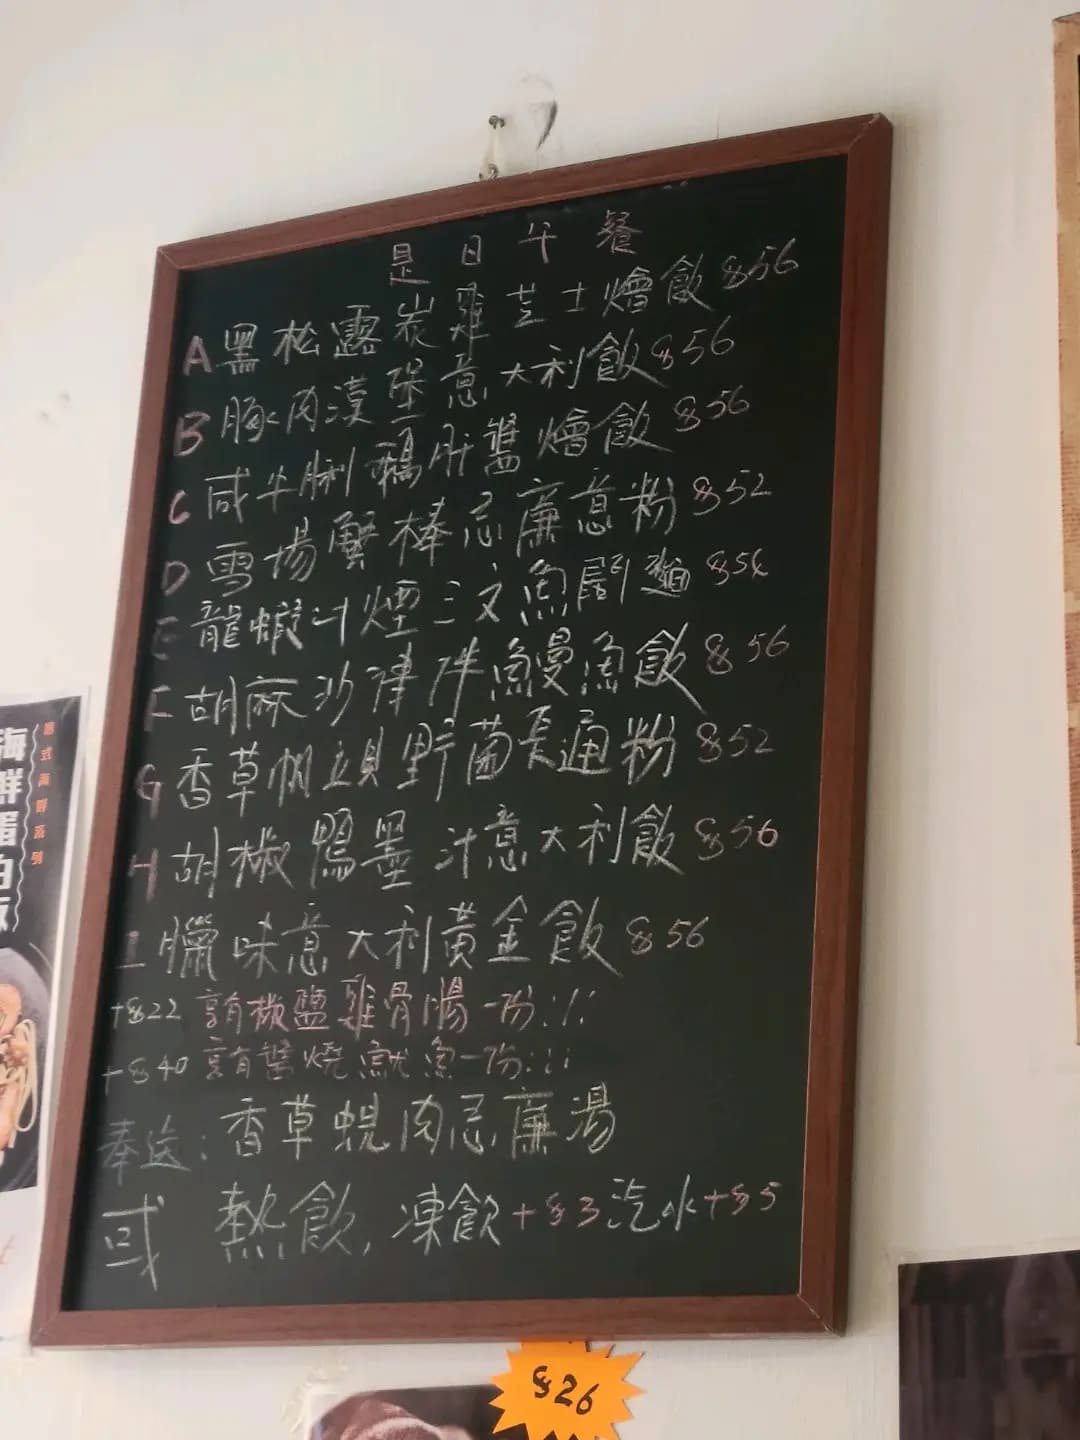 是日午餐
A 黑松露炭雞芝士燴飯 $56
B 豚肉漢堡意大利飯 $56
C 咸牛脷鵝肝醬燴飯 $56
D 雪場蟹棒忌廉意粉 $52
E 龍蝦汁煙三文魚闊麵 $54
F 胡麻沙津伴鰻魚飯 $56
G 香草帆立貝野菌長通粉 $52
H 胡椒鴨墨汁意大利飯 $56
I 臘味意大利黃金飯 $56
+$22 享有椒鹽雞骨腸一份
+$40 享有醬燒魷魚一份
奉送：香草蜆肉忌廉湯
或 熱飲，凍飲+$3汽水+$5
海鮮
$26